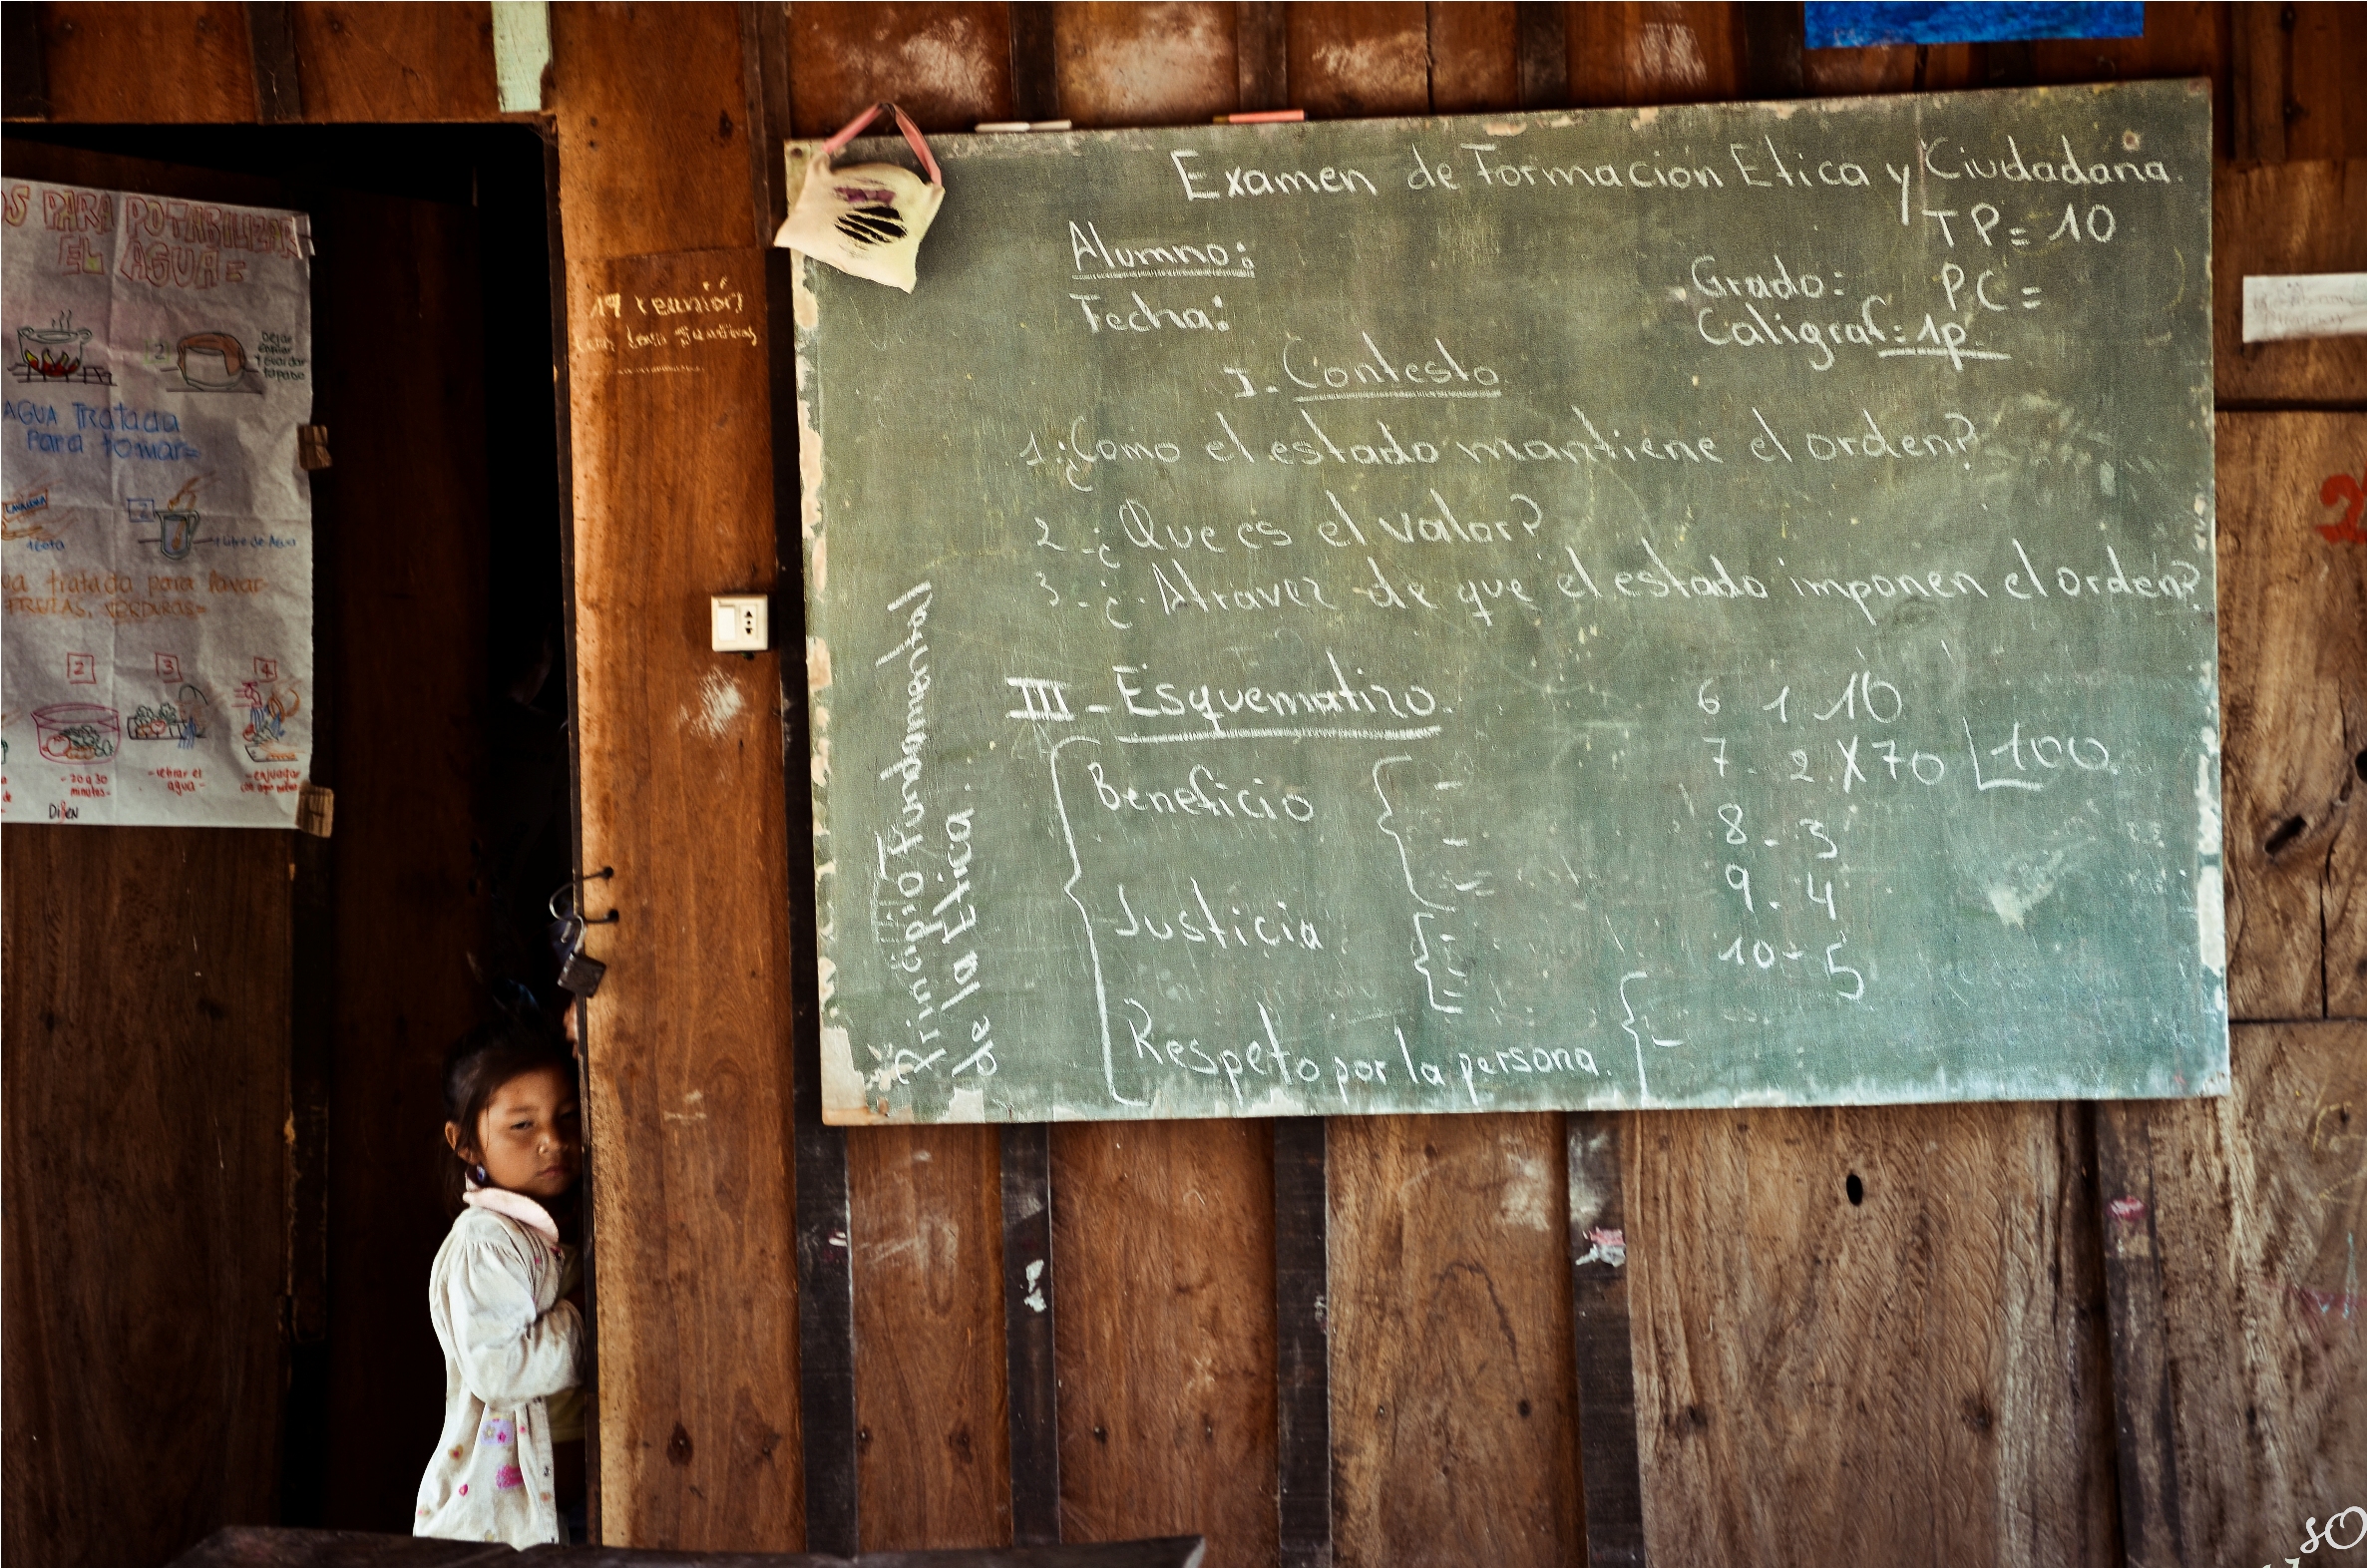 OS PARA POTABILIZAR
EL AGUA=
2
Dejar
tapado
AGUA Tratada
Para tomar=
LAVANDINA
1 Gota
2
1 Litro de Agua
tratada para lavar
FRUTAS, VERDURAS=
2
3
4
-20 a 30
minutos-
agua-
-enjuagar
19 reunión
Examen de Formación Etica y Ciudadana.
TP= 10
Alumno:
Grado:
PC=
Fecha:
Caligraf=1p.
I- Contesto
1-¿Como el estado mantiene el orden?
2-¿Que es el valor?
3-¿Atravez de que el estado imponen el orden?
III- Esquematizo.
Principio Fundamental
de la Etica.
Beneficio
Justicia
Respeto por la persona.
6 1 10
7. 2 X70 100
8. 3
9. 4
10- 5